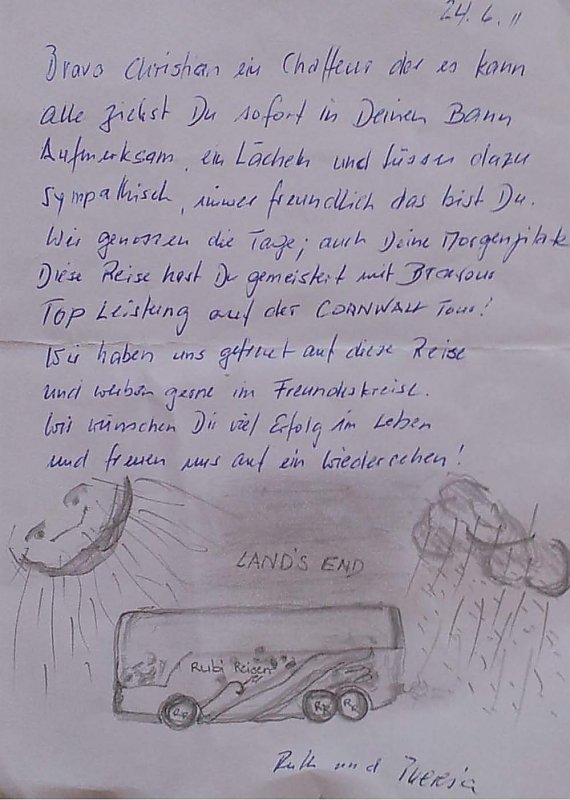 24.6.11
Bravo Christian ein Chaffeur der es kann
alle ziehst Du sofort in Deinen Bann
Aufmerksam, ein Lächeln und dazu
Sympathisch, immer freundlich das bist Du.
Wir genossen die Tage; auch Deine
Diese Reise hast Du gemeistert mit Bravour
TOP Leistung auf der CORNWALL Tour!
Wir haben uns gefreut auf diese Reise
und werben gerne im Freundeskreise.
Wir wünschen Dir viel Erfolg im Leben
und freuen uns auf ein Wiedersehen!
LAND'S END
Rubi Reisen
RR RR RR
Ruth und Theresia